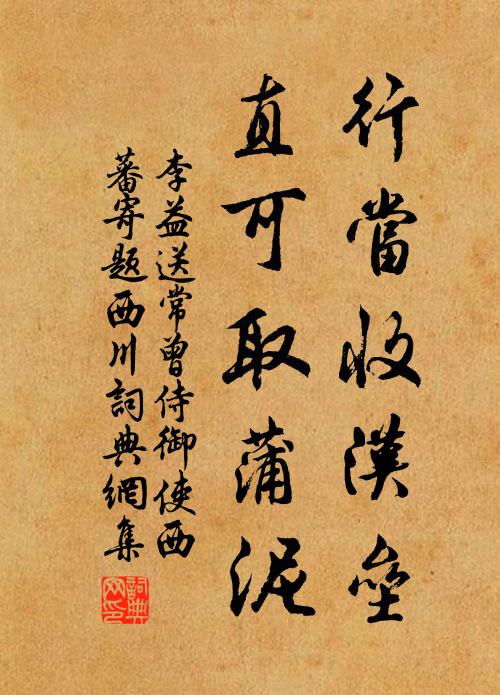 行當收漢壘
直可取蒲泥
李益送常曾侍御使西
蕃寄題西川詞典網集
詞典
网印